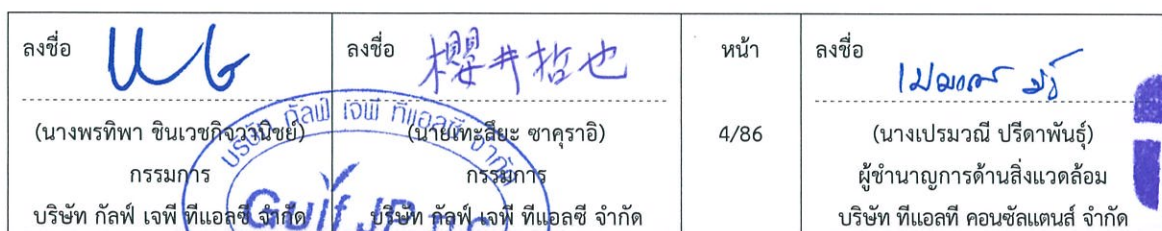 ลงชื่อ
(นางพรทิพา ชินเวชกิจวานิชย์)
กรรมการ
บริษัท กัลฟ์ เจพี ทีแอลซี จำกัด
ลงชื่อ 櫻井哲也
(นายเทะสึยะ ซาคุราอิ)
กรรมการ
บริษัท กัลฟ์ เจพี ทีแอลซี จำกัด
หน้า
4/86
ลงชื่อ
(นางเปรมวณี ปรีดาพันธุ์)
ผู้ชำนาญการด้านสิ่งแวดล้อม
บริษัท ทีแอลที คอนซัลแตนส์ จำกัด
บริษัท กัลฟ์ เจพี ทีแอลซี จำกัด
Gulf JP